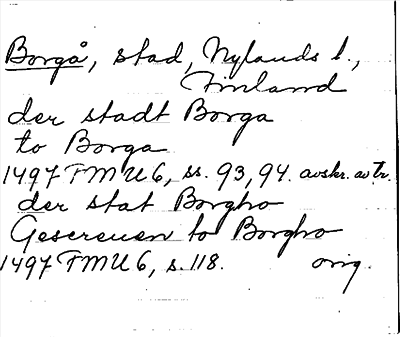 Borgå, stad, Nylands l.,
Finland
der stadt Borga
to Borga
1497 FMU 6, ss. 93, 94. avskr. av tr.
der stat Borgho
Gescreuen to Borgho
1497 FMU 6, s. 118. orig.